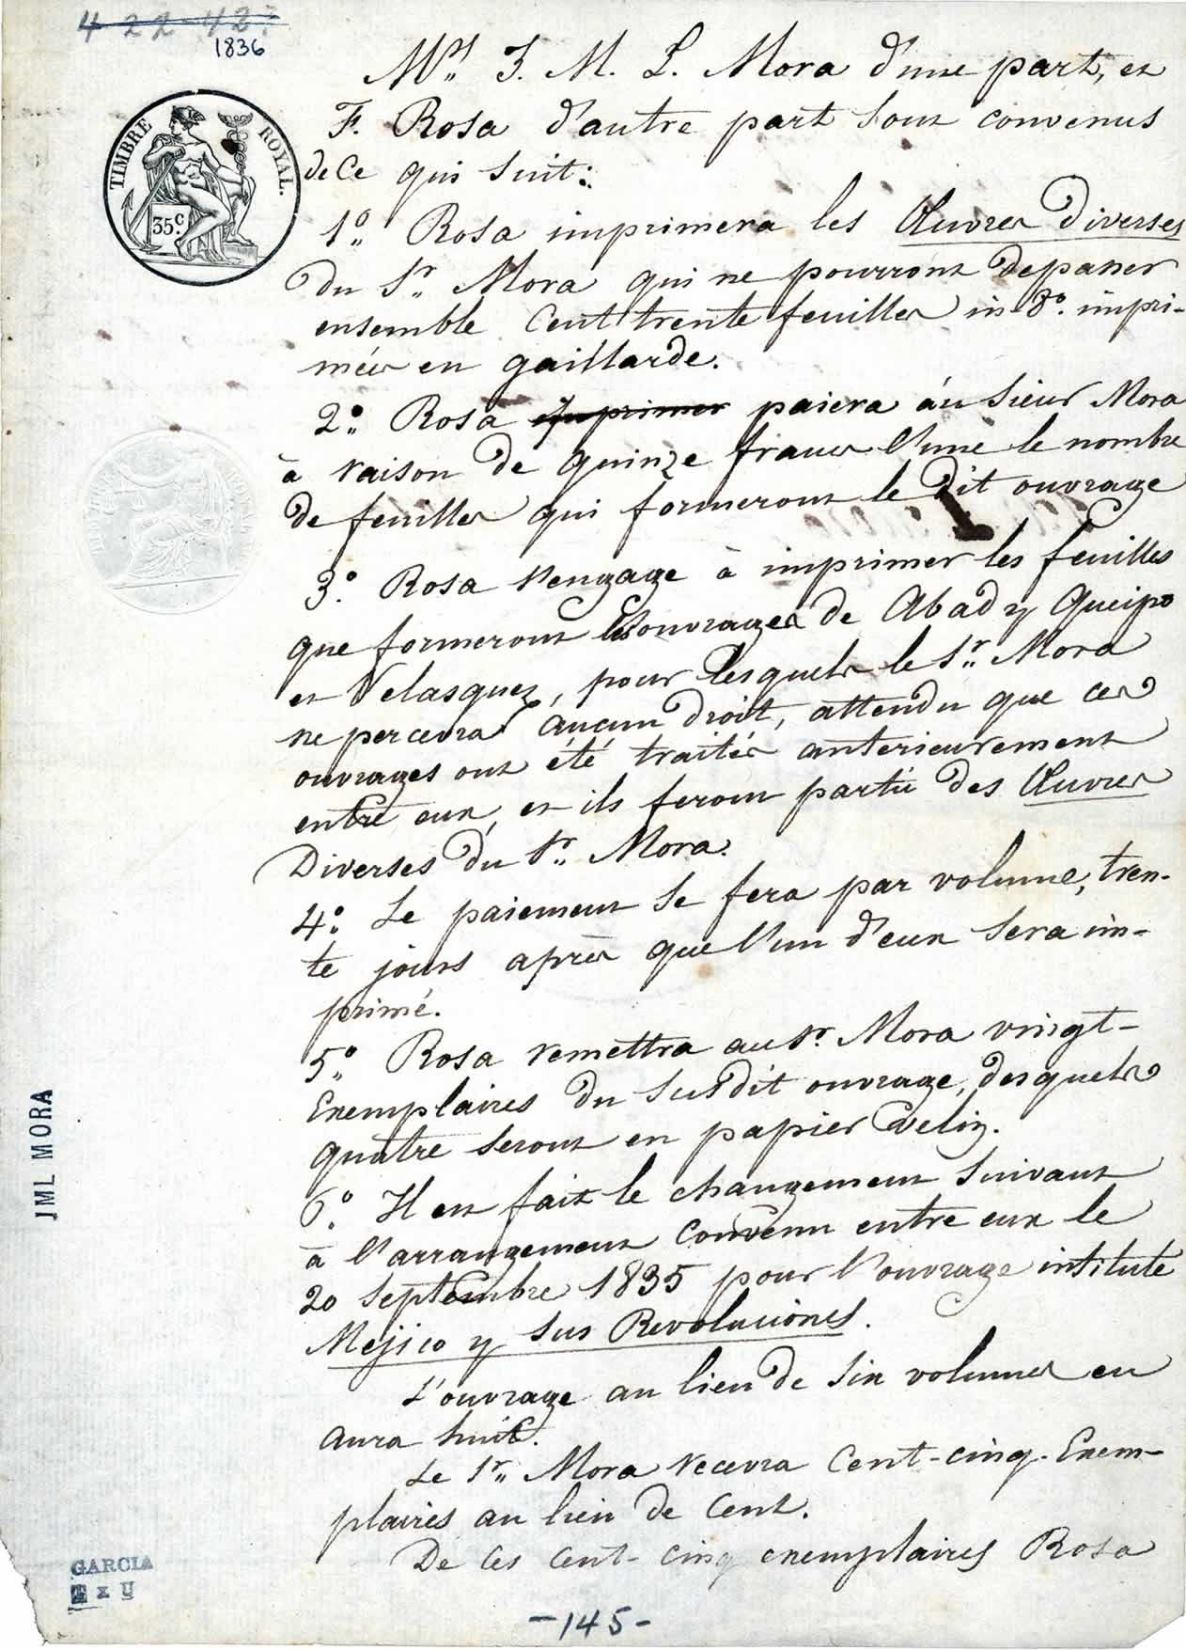 4 22-42:
1836
TIMBRE ROYAL.
35c.
Mrs J. M. L. Mora d'une part, et
F. Rosa d'autre part sont convenus
de ce qui suit:
1º Rosa imprimera les Œuvres diverses
du Sr. Mora qui ne pourront depasser
ensemble Cent trente feuilles in 8º. impri-
mées en gaillarde.
2º Rosa imprimer paiera au Sieur Mora
à raison de quinze francs l'une le nombre
de feuilles qui formeront le dit ouvrage
3º. Rosa s'engage à imprimer les feuilles
que formeront les ouvrages de Abad y Queipo
et Velasquez, pour lesquels le Sr. Mora
ne percevra aucun droit, attendu que ces
ouvrages ont été traités anterieurement
entre eux, et ils feront partie des Œuvres
Diverses du Sr. Mora.
4º Le paiement se fera par volume, tren-
te jours après que l'un d'eux sera im-
primé.
5º Rosa remettra au Sr. Mora vingt-
Exemplaires du Susdit ouvrage, desquels
quatre seront en papier velin.
6º. Il est fait le changement suivant
à l'arrangement convenu entre eux le
20 Septembre 1835 pour l'ouvrage intitute
Mejico y sus Revoluciones.
L'ouvrage au lieu de six volumes en
aura huit.
Le Sr. Mora recevra Cent-cinq. Exem-
plaires au lieu de Cent.
De ces cent-cinq exemplaires Rosa
JML MORA
GARCIA
-145-